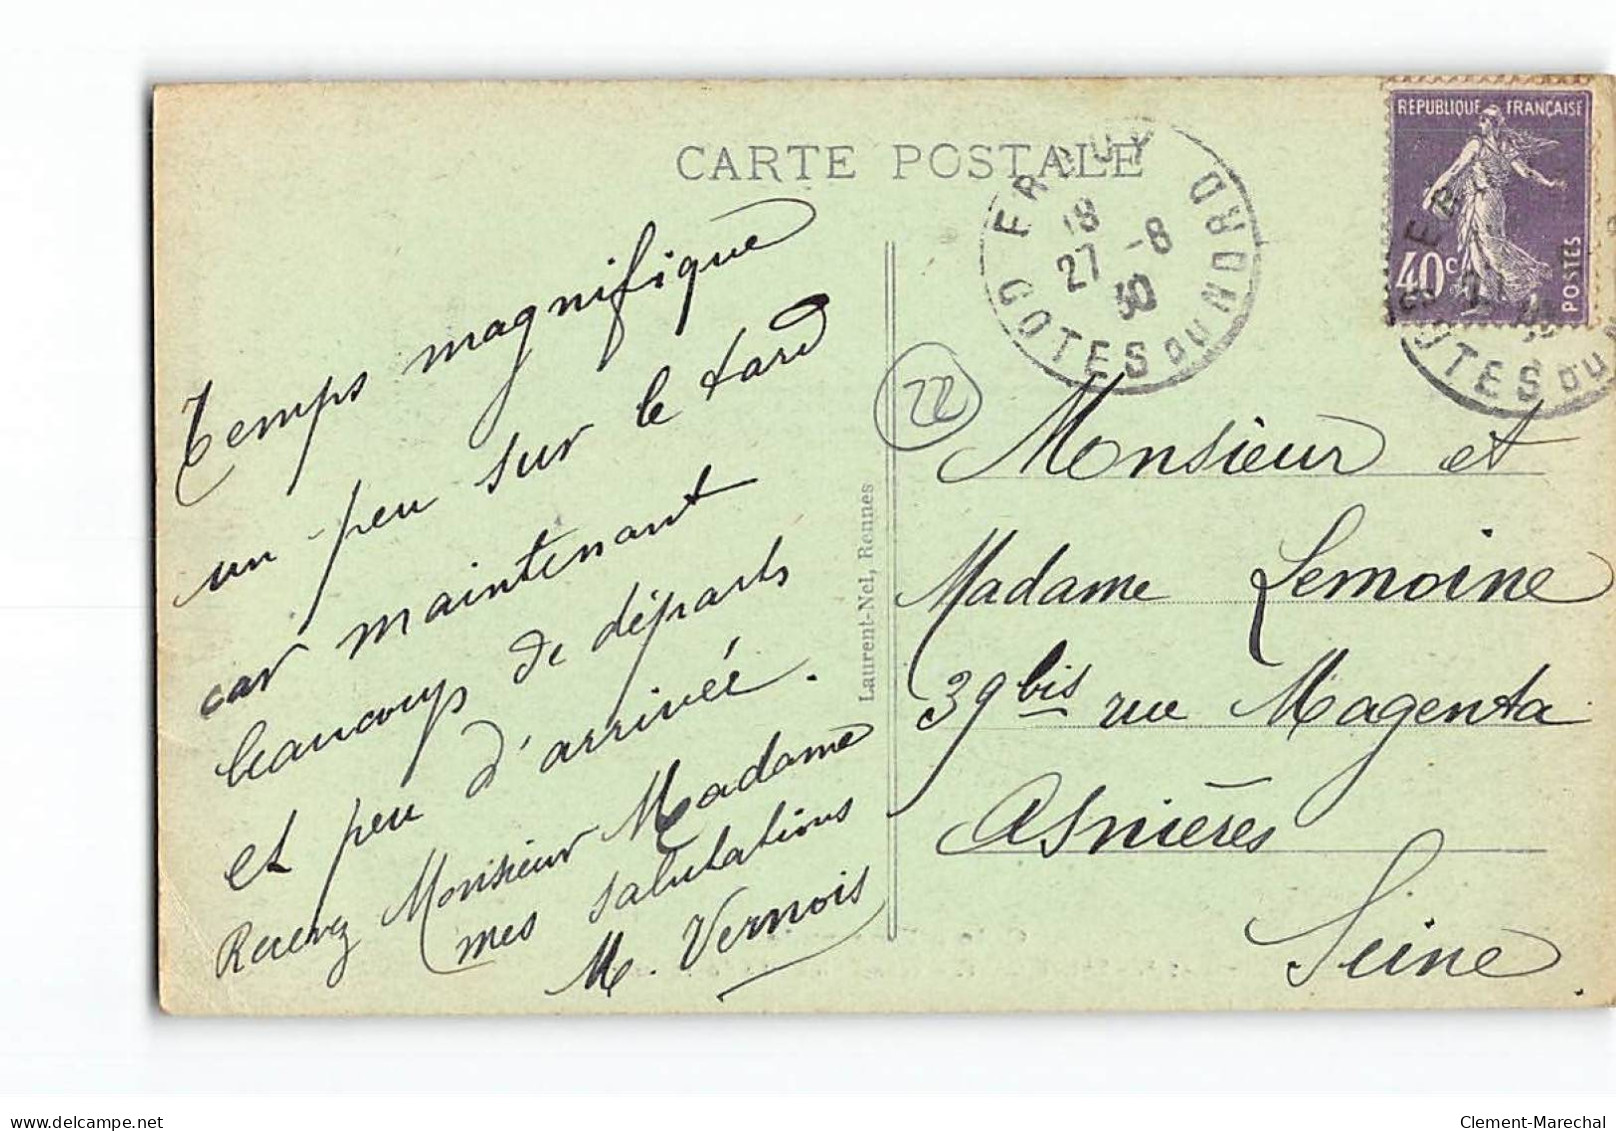 CARTE POSTALE
ERQUY
18
27 -8
30
COTES DU NORD
RÉPUBLIQUE FRANÇAISE
40c
POSTES
COTES DU N
22
Temps magnifique
un peu sur le tard
car maintenant
beaucoup de départs
et peu d'arrivée.
Recevez Monsieur Madame
mes salutations
M. Vernois
Laurent-Nel, Rennes
Monsieur et
Madame Lemoine
39 bis rue Magenta
Asnières
Seine
delcampe.net
Clement-Marechal